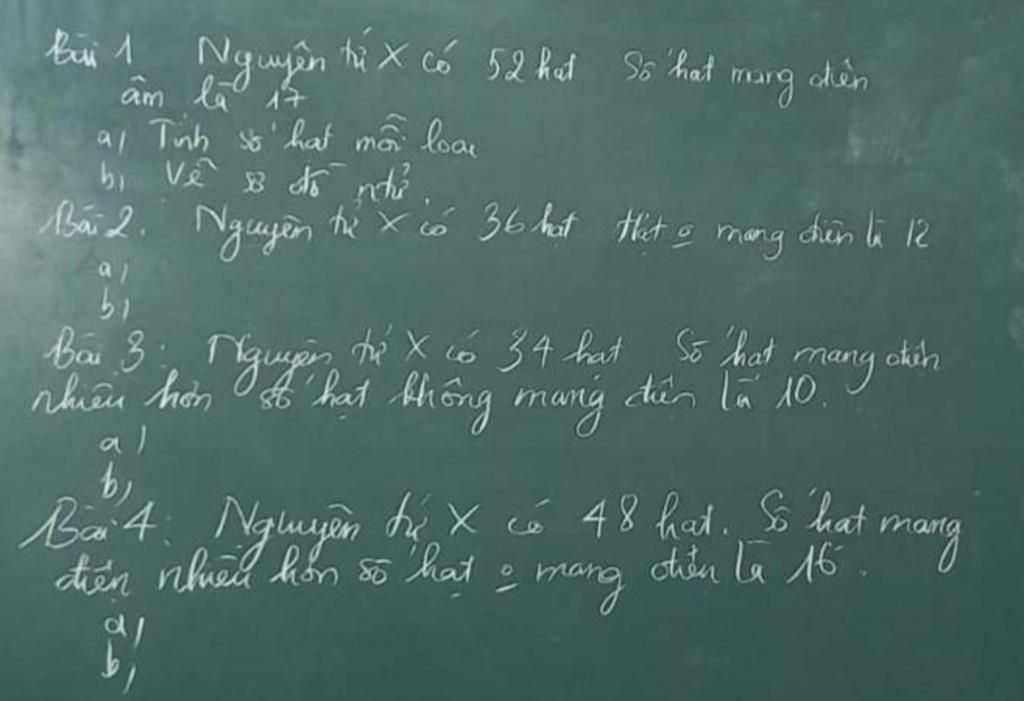 Bài 1 Nguyên tử X có 52 hạt Số hạt mang điện
âm là 17
a) Tính số hạt mỗi loại
b) Vẽ sơ đồ ntử.
Bài 2. Nguyên tử X có 36 hạt Hạt o mang điện là 12
a)
b)
Bài 3: Nguyên tử X có 34 hạt Số hạt mang điện
nhiều hơn số hạt không mang điện là 10.
a)
b)
Bài 4: Nguyên tử X có 48 hạt. Số hạt mang
điện nhiều hơn số hạt o mang điện là 16.
a)
b)